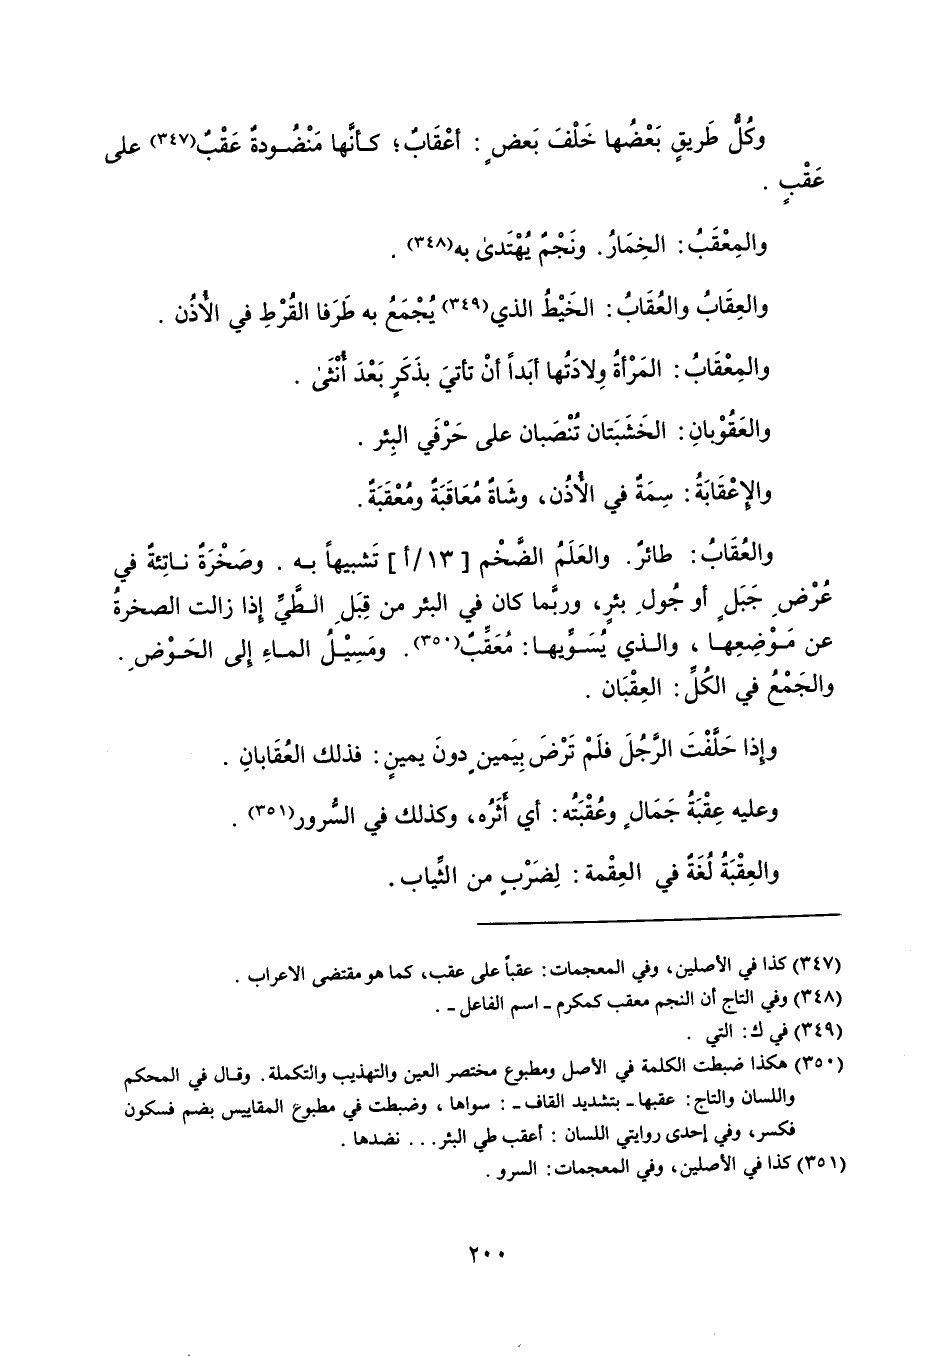 وكُلُّ طَريقٍ بَعْضُها خَلْفَ بَعضٍ : أعْقَابٌ؛ كـأنَّها مَنْضُـودةٌ عَقْبٌ(٣٤٧) على
عَقْبٍ .
والمِعْقَبُ: الخِمَارُ. ونَجْمٌ يُهْتَدىٰ به(٣٤٨) .
والعِقَابُ والعُقَابُ: الخَيْطُ الذي(٣٤٩) يُجْمَعُ به طَرَفا القُرْطِ في الأُذُن .
والمِعْقَابُ: المَرْأةُ وِلادَتُها أبَداً أنْ تأتيَ بذَكَرٍ بَعْدَ أُنْثىٰ .
والعَقُوْبانِ: الخَشَبَتان تُنْصَبان على حَرْفَي البِئر .
والإِعْقَابَةُ: سِمَةٌ في الأُذُن، وشَاةٌ مُعَاقَبَةٌ ومُعْقَبَةٌ.
والعُقَابُ: طائرٌ. والعَلَمُ الضَّخْم [ ١٣/أ ] تَشبيهاً بـه . وصَخْرَةٌ نـاتِئةٌ في
عُرْضِ جَبَلٍ أو جُولِ بئرٍ، وربَّما كان في البئر من قِبَلِ الطَّيِّ إذا زالت الصخرةُ
عن مَـوْضِعِهـا ، والـذي يُسَـوِّيهـا: مُعَقِّبٌ(٣٥٠). ومَسِيْلُ المـاءِ إلى الحَـوْضِ.
والجَمْعُ في الكُلِّ: العِقْبَان .
وإذا حَلَّفْتَ الرَّجُلَ فلَمْ تَرْضَ بِيَمينٍ دونَ يمينٍ: فذلك العُقابانِ .
وعليه عِقْبَةُ جَمَالٍ وعُقْبَتُه: أي أَثَرُه، وكذلك في السُّرور(٣٥١) .
والعِقْبَةُ لُغَةٌ في العِقْمة: لِضَرْبٍ من الثِّياب.
(٣٤٧) كذا في الأصلين، وفي المعجمات: عقباً على عقب، كما هو مقتضى الاعراب .
(٣٤٨) وفي التاج أن النجم معقب كمكرم ـ اسم الفاعل ـ .
(٣٤٩) في ك: التي .
(٣٥٠) هكذا ضبطت الكلمة في الأصل ومطبوع مختصر العين والتهذيب والتكملة. وقال في المحكم
واللسان والتاج: عقبها ـ بتشديد القاف ـ: سواها ، وضبطت في مطبوع المقاييس بضم فسكون
فكسر، وفي إحدى روايتي اللسان : أعقب طي البئر... نضدها .
(٣٥١) كذا في الأصلين، وفي المعجمات: السرو .
٢٠٠